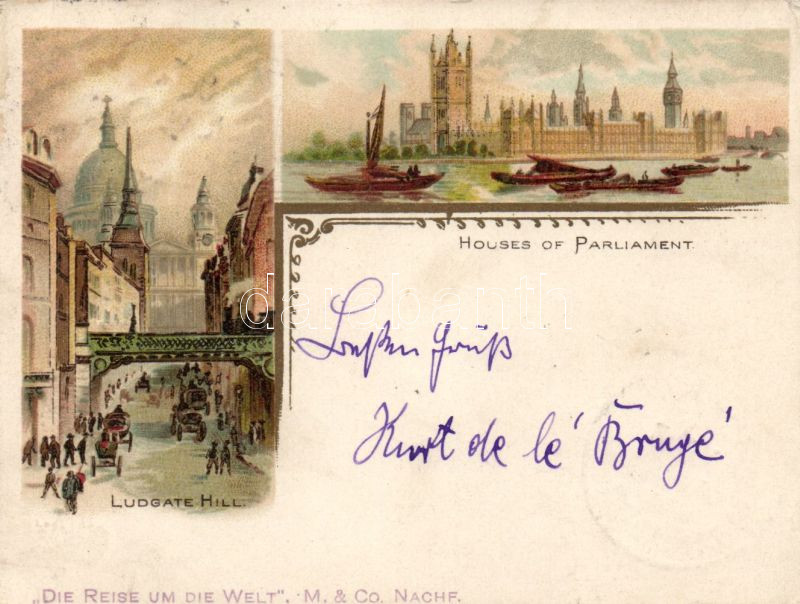 HOUSES OF PARLIAMENT.
darabanth
Besten Gruß
Kurt de lé Brugé
LUDGATE HILL.
„DIE REISE UM DIE WELT". M. & CO. NACHF.